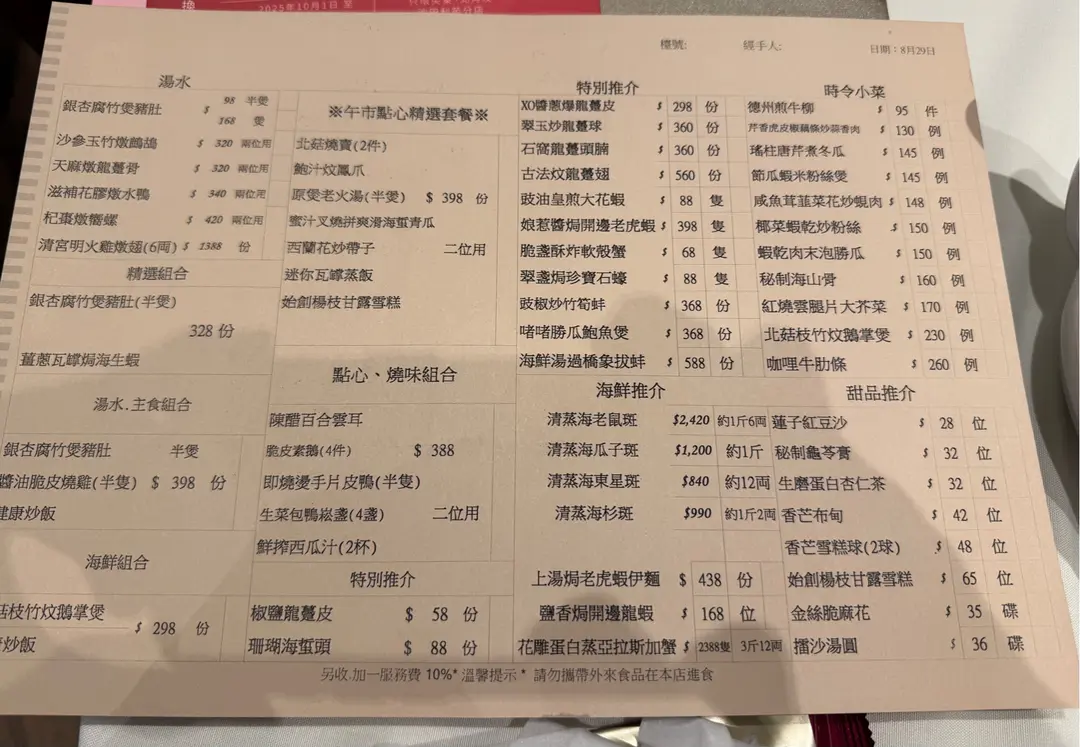 換
2025年10月1日 至
檯號:
經手人:
日期：8月29日
湯水
銀杏腐竹煲豬肚 $ 98 半煲
168 煲
沙參玉竹燉鷓鴣 $ 320 兩位用
天麻燉龍躉骨 $ 320 兩位用
滋補花膠燉水鴨 $ 340 兩位用
杞棗燉響螺 $ 420 兩位用
清宮明火雞燉翅(6両) $ 1388 份
精選組合
銀杏腐竹煲豬肚(半煲)
328 份
薑蔥瓦罉焗海生蝦
湯水.主食組合
銀杏腐竹煲豬肚 半煲
醬油脆皮燒雞(半隻) $ 398 份
健康炒飯
海鮮組合
菇枝竹炆鵝掌煲
$ 298 份
炒飯
※午市點心精選套餐※
北菇燒賣(2件)
鮑汁炆鳳爪
原煲老火湯(半煲) $ 398 份
蜜汁叉燒拼爽滑海蜇青瓜
西蘭花炒帶子 二位用
迷你瓦罉蒸飯
始創楊枝甘露雪糕
點心、燒味組合
陳醋百合雲耳
脆皮素鵝(4件) $ 388
即燒燙手片皮鴨(半隻)
生菜包鴨崧盞(4盞) 二位用
鮮搾西瓜汁(2杯)
特別推介
椒鹽龍躉皮 $ 58 份
珊瑚海蜇頭 $ 88 份
特別推介
XO醬蔥爆龍躉皮 $ 298 份
翠玉炒龍躉球 $ 360 份
石窩龍躉頭腩 $ 360 份
古法炆龍躉翅 $ 560 份
豉油皇煎大花蝦 $ 88 隻
娘惹醬焗開邊老虎蝦 $ 398 隻
脆盞酥炸軟殼蟹 $ 68 隻
翠盞焗珍寶石蠔 $ 88 隻
豉椒炒竹筍蚌 $ 368 份
啫啫勝瓜鮑魚煲 $ 368 份
海鮮湯過橋象拔蚌 $ 588 份
海鮮推介
清蒸海老鼠斑 $2,420 約1斤6両
清蒸海瓜子斑 $1,200 約1斤
清蒸海東星斑 $840 約12両
清蒸海杉斑 $990 約1斤2両
上湯焗老虎蝦伊麵 $ 438 份
鹽香焗開邊龍蝦 $ 168 位
花雕蛋白蒸亞拉斯加蟹 $ 2388隻 3斤12両
時令小菜
德州煎牛柳 $ 95 件
芹香虎皮椒藕條炒蒜香肉 $ 130 例
瑤柱唐芹煮冬瓜 $ 145 例
節瓜蝦米粉絲煲 $ 145 例
咸魚茸韮菜花炒蜆肉 $ 148 例
椰菜蝦乾炒粉絲 $ 150 例
蝦乾肉末泡勝瓜 $ 150 例
秘制海山骨 $ 160 例
紅燒雲腿片大芥菜 $ 170 例
北菇枝竹炆鵝掌煲 $ 230 例
咖哩牛肋條 $ 260 例
甜品推介
蓮子紅豆沙 $ 28 位
秘制龜苓膏 $ 32 位
生磨蛋白杏仁茶 $ 32 位
香芒布甸 $ 42 位
香芒雪糕球(2球) $ 48 位
始創楊枝甘露雪糕 $ 65 位
金絲脆麻花 $ 35 碟
擂沙湯圓 $ 36 碟
另收.加一服務費 10%* 溫馨提示 * 請勿攜帶外來食品在本店進食